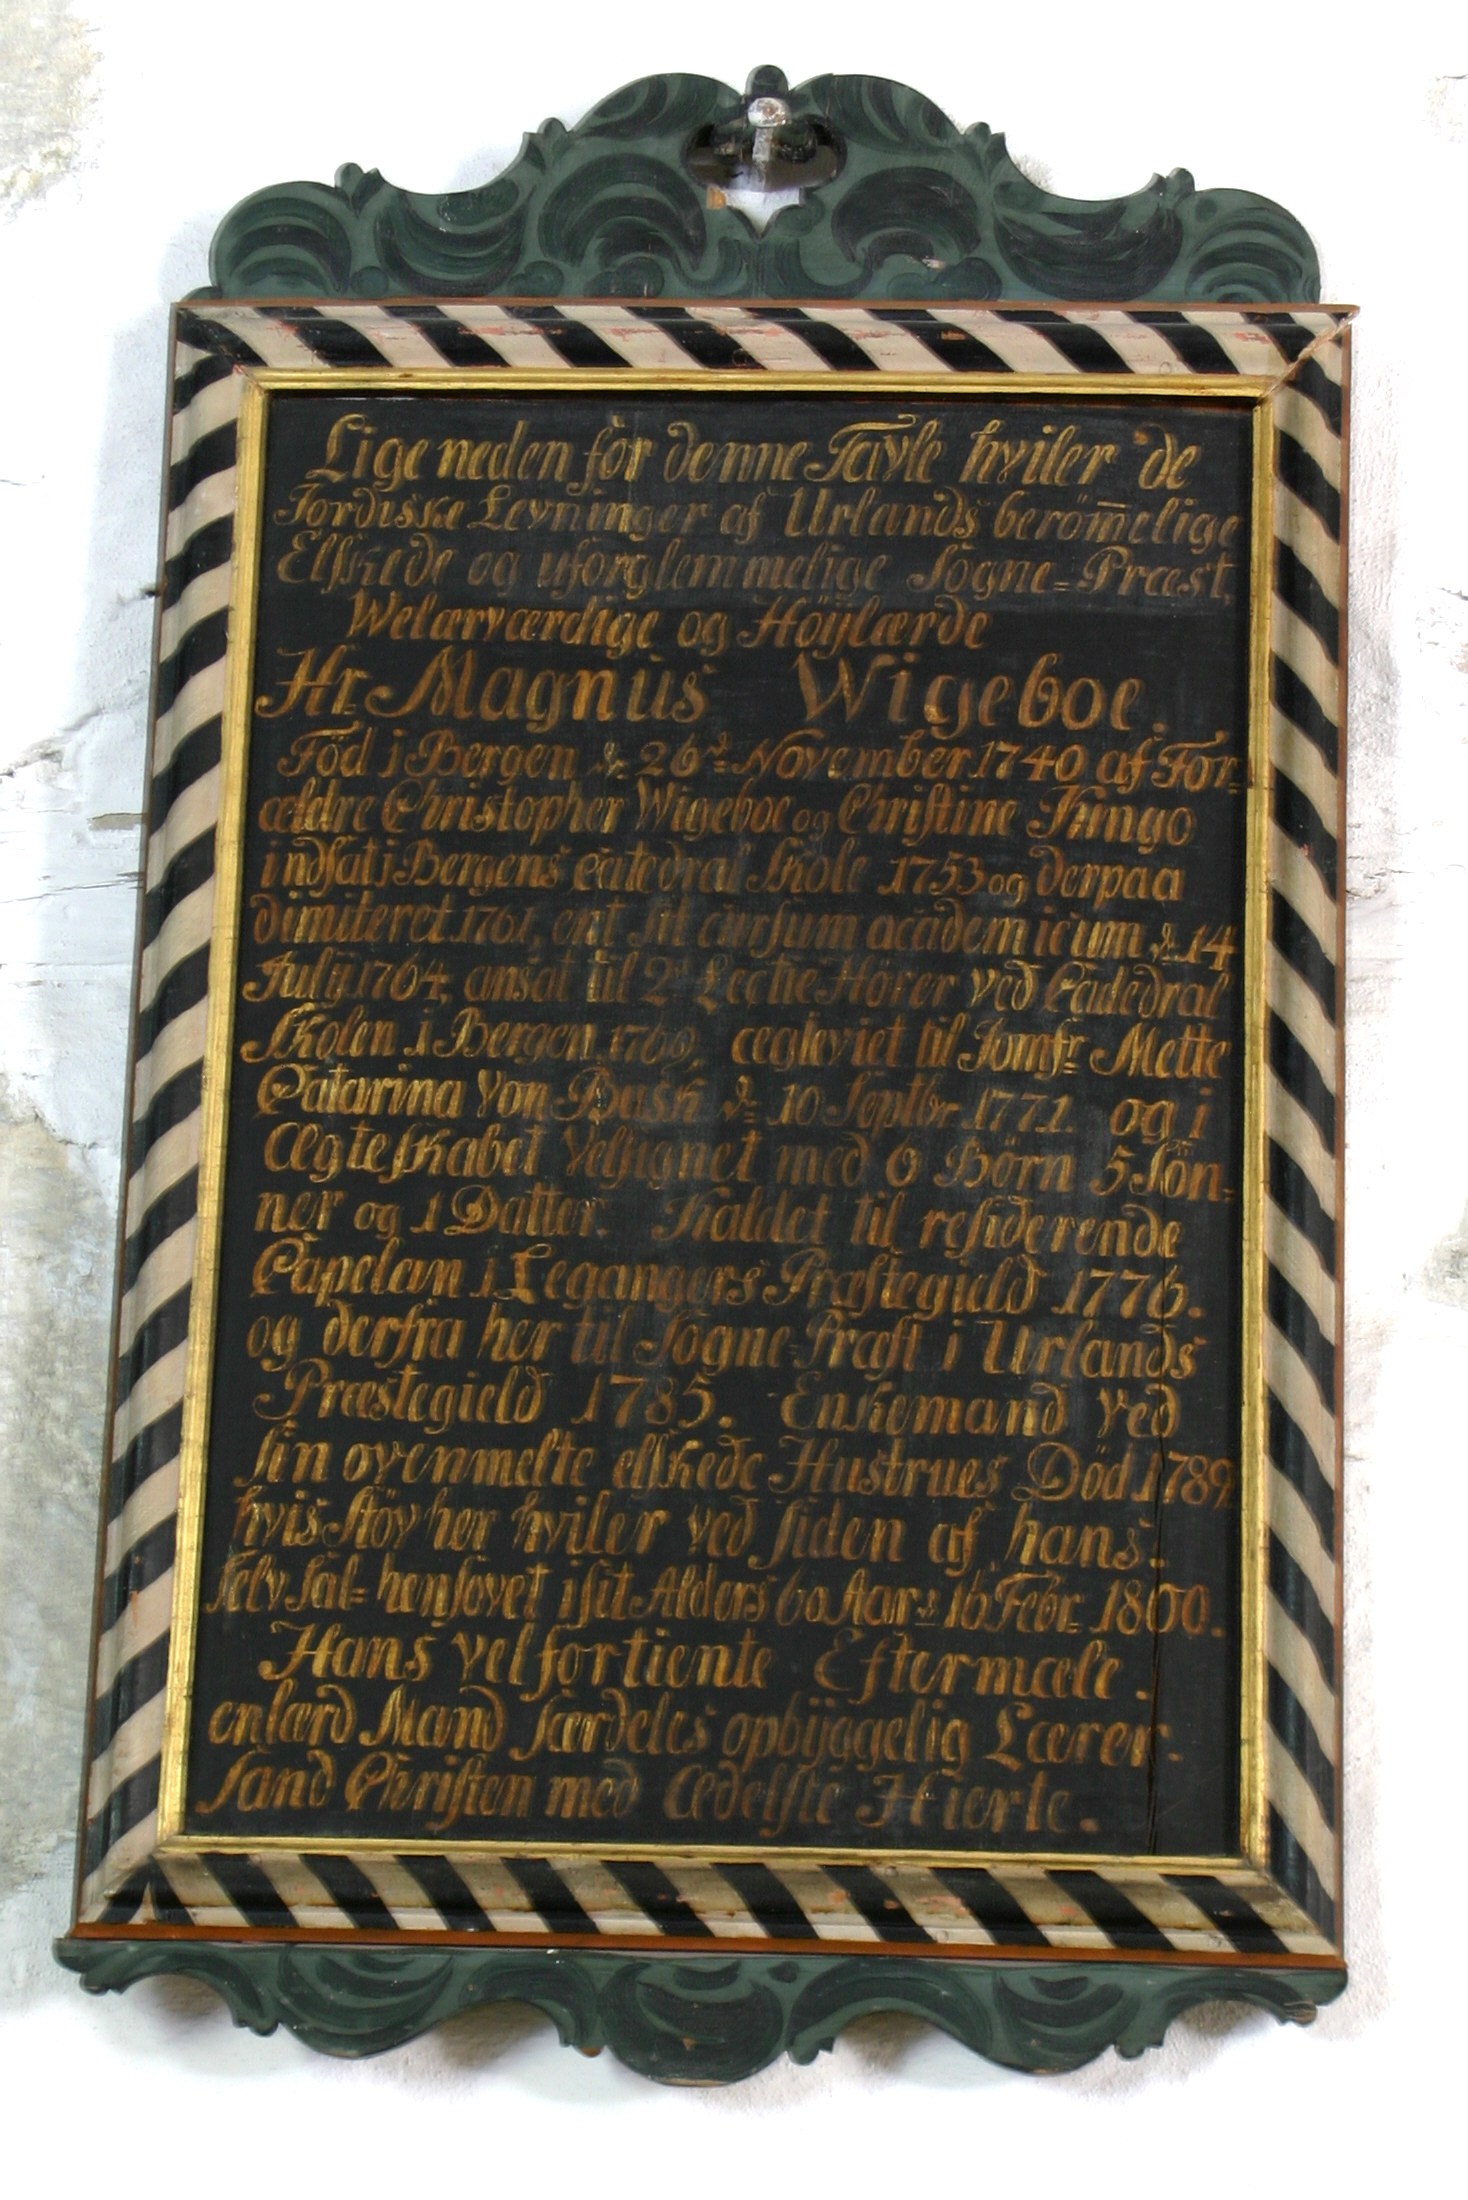 Lige neden for denne Tavle hviler de
Jordiske Levninger af Urlands beröm̄elige
Elskede og uforglemmelige Sogne=Præst,
Welærværdige og Höÿlærde
Hr. Magnus Wigeboe.
Föd i Bergen d. 26d. November 1740 af For=
ældre Christopher Wigeboe og Christine Kingo
indsat i Bergens Catedral Skole 1753 og derpaa
dimiteret 1761, ent sit cursum academicum d. 14
Julÿ 1764, ansat til 2d. Lectie Hörer ved Catedral
Skolen i Bergen 1769, ægteviet til Jomfr. Mette
Catarina von Busk d. 10 Septbr. 1771. og i
Ægteskabet Velsignet med 6 Börn 5 Sön=
ner og 1 Datter. Kaldet til residerende
Capelan i Legangers Præstegield 1776.
og derfra her til Sogne=Præst i Urlands
Præstegield 1785. Enkemand ved
sin ovenmelte elskede Hustrues Död 1789
hvis Stöv her hviler ved siden af hans.
Selv Sal= hensovet i sit Alders 60 Aar d. 16 Febr. 1800.
Hans velfortiente Eftermæle.
en lærd Mand særdeles opbÿggelig Lærer.
sand Christen med ædelste Hierte.